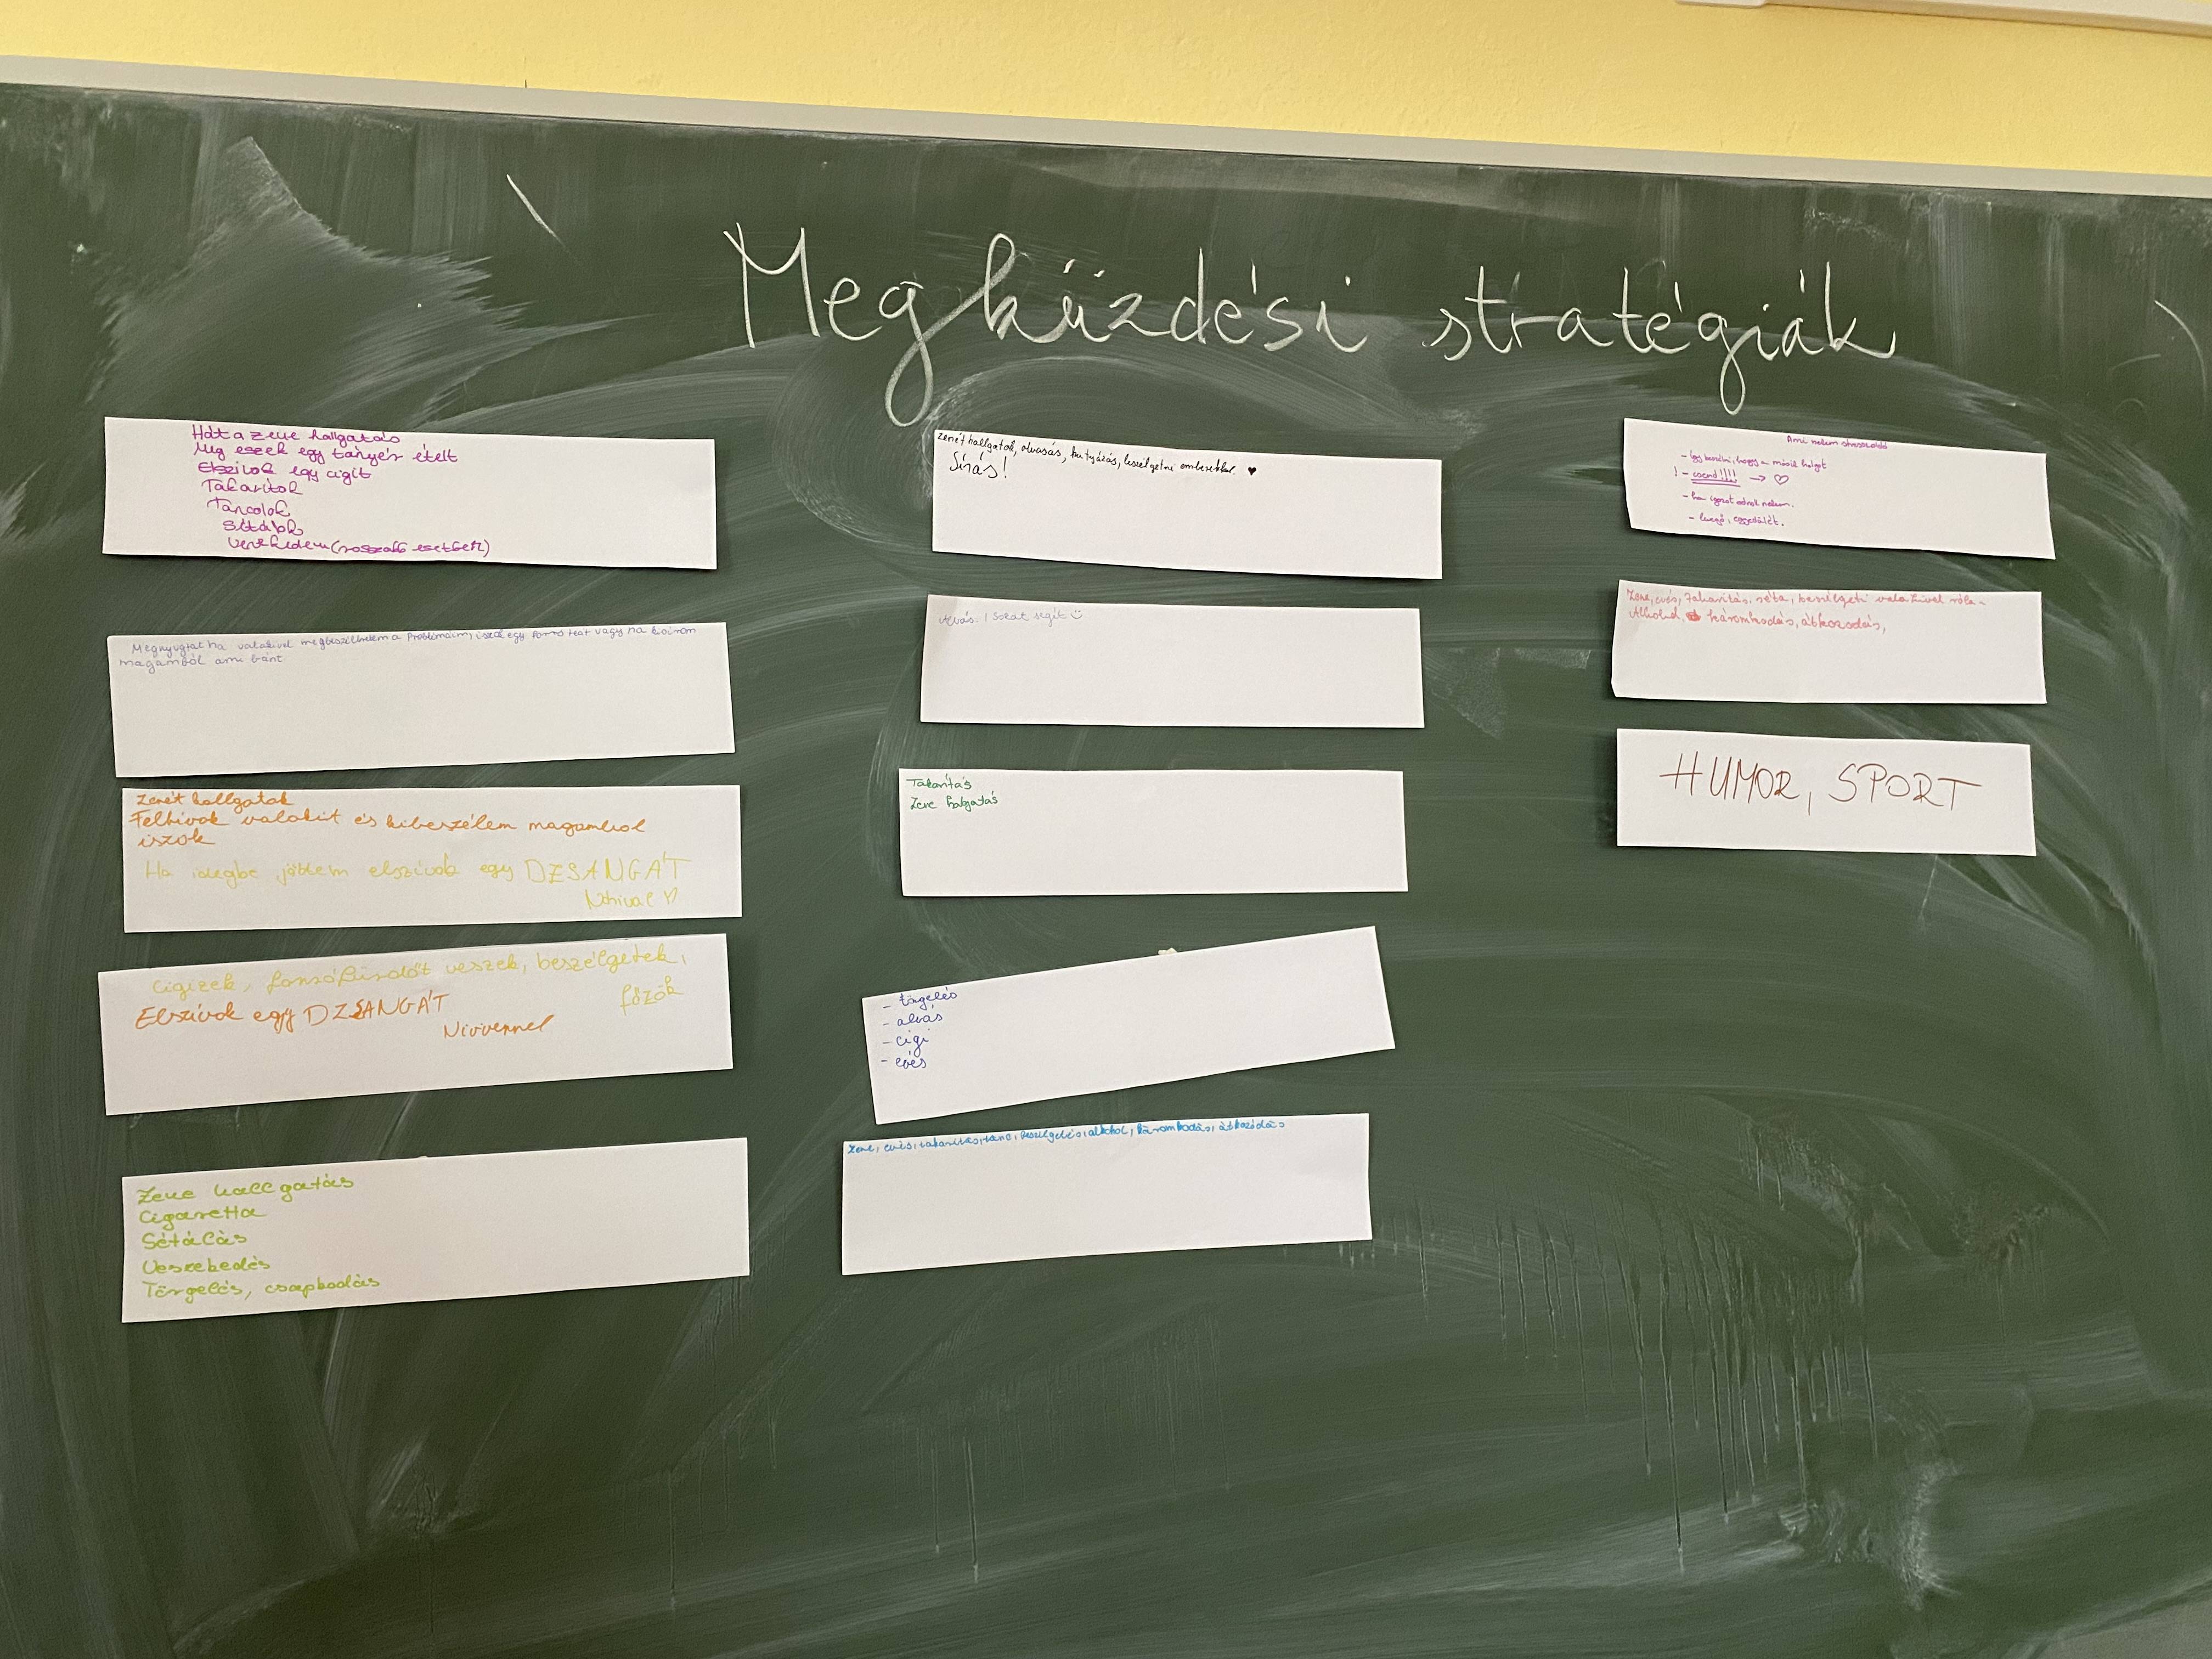 Megküzdési stratégiák
Hát a zene hallgatás
Meg eszek egy tányér ételt
Elszivok egy cigit
Takarítok
Táncolok
Sétálok
verekedem (rosszabb esetben)
Megnyugtat ha valakivel megbeszélhetem a problémáim, iszok egy forró teát vagy ha kiírom
magamból ami bánt
Zenét hallgatok
Felhivok valakit és kibeszélem magambol
iszok
Ha idegbe jöttem elszívok egy DZSANGÁT
Cigizek, forró fürdőt veszek, beszélgetek,
főzök
Elszívok egy DZSANGÁT
Nivvennel
Zene hallgatás
Cigaretta
Sétálás
Veszekedés
Törgelés, csapkodás
zenét hallgatok, olvasás, kutyázás, beszélgetni emberekkel. ♥
Sírás!
Alvás. ! Sokat segít
Takarítás
Zene halgatás
- törgelés
- alvás
- cigi
- evés
zene, evés, takarítás, tánc, beszélgetés, alkohol, káromkodás, átkozódás
Ami nekem
- úgy beszélni, hogy a másik halgat
! - csend!!!! → ♡
- ha igazat adnak nekem.
- levegő, egyedüllét.
Zene, evés, takarítás, séta, beszélgetés valakivel róla-
Alkohol, káromkodás, átkozódás,
HUMOR, SPORT